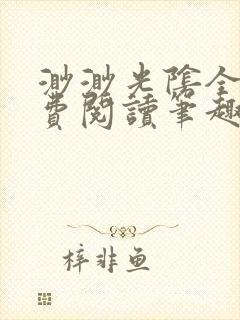 渺渺光陰全
費閱讀筆趣
梓非魚